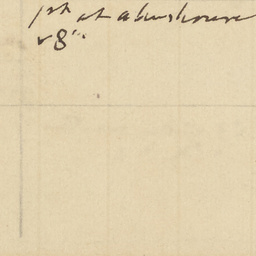 1st at almshouse
v 8th